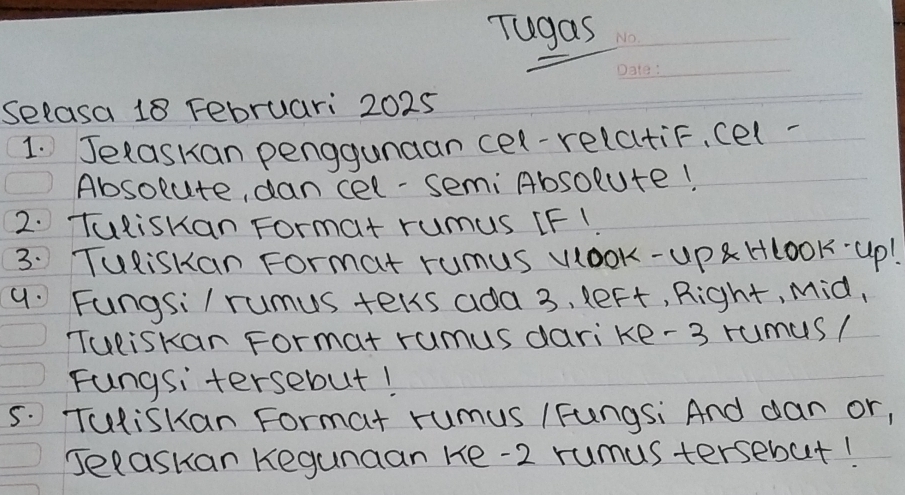 Tugas
No.
Date:
Selasa 18 Februari 2025
1. Jelaskan penggunaan cel-relatif, cel-
Absolute, dan cel-semi Absolute!
2. Tuliskan Format rumus IF!
3. Tuliskan Format rumus Vlook-up & Hlook-up!
4. Fungsi/rumus teks ada 3, left, Right, Mid,
Tuliskan Format rumus dari ke-3 rumus/
Fungsi tersebut!
5. Tuliskan Format rumus/Fungsi And dan or,
Jelaskan Kegunaan Ke-2 rumus tersebut!